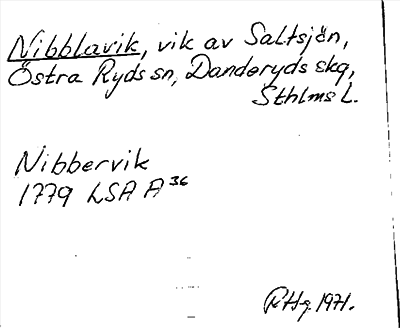 Nibblavik, vik av Saltsjön,
Östra Ryds sn, Danderyds skg,
Sthlms L.
Nibbervik
1779 LSA A 36
RHg. 1971.